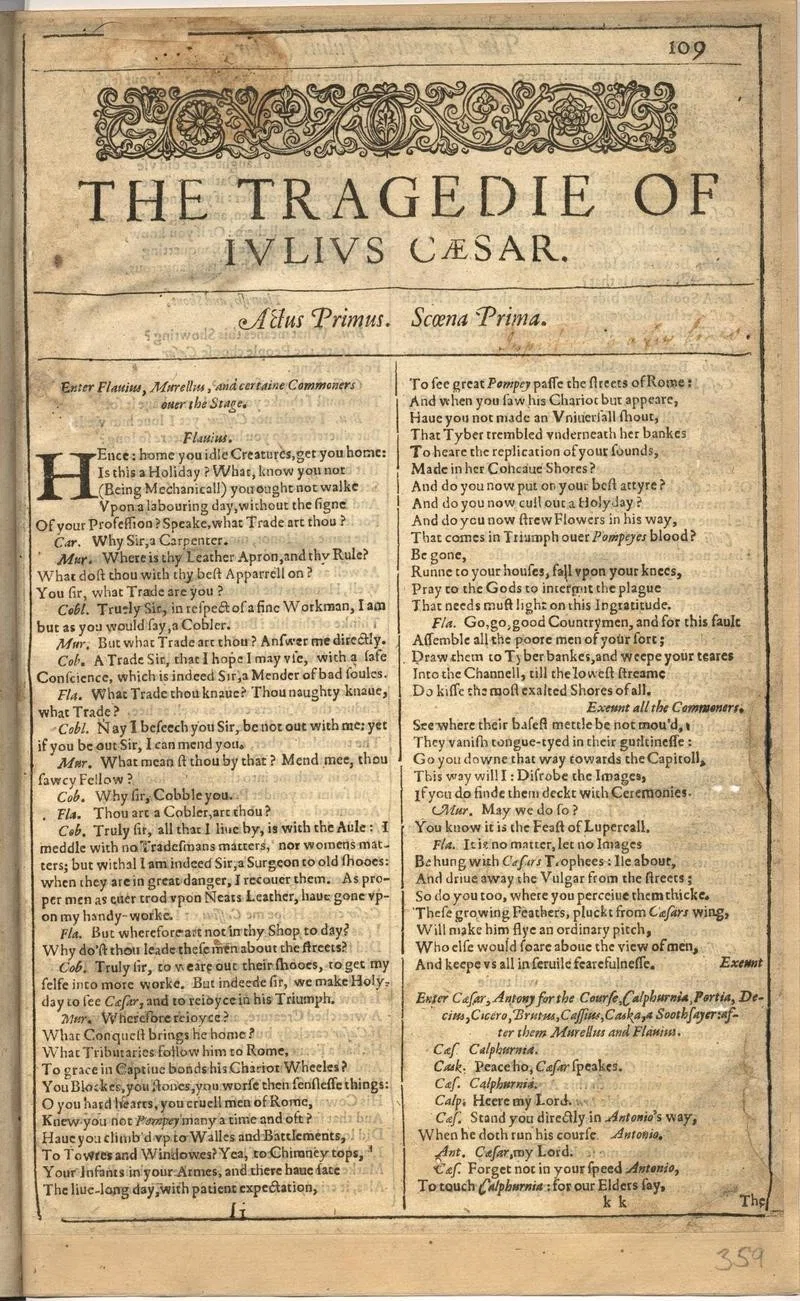 109
THE TRAGEDIE OF
IVLIVS CÆSAR.
Actus Primus. Scœna Prima.
Enter Flauius, Murellus, and certaine Commoners
ouer the Stage.
Flauius.
HEnce: home you idle Creatures, get you home:
Is this a Holiday? What, know you not
(Being Mechanicall) you ought not walke
Vpon a labouring day, without the signe
Of your Profeſſion? Speake, what Trade art thou?
Car. Why Sir, a Carpenter.
Mur. Where is thy Leather Apron, and thy Rule?
What doſt thou with thy beſt Apparrell on?
You ſir, what Trade are you?
Cobl. Truely Sir, in reſpect of a fine Workman, I am
but as you would ſay, a Cobler.
Mur. But what Trade art thou? Anſwer me directly.
Cob. A Trade Sir, that I hope I may vſe, with a ſafe
Conſcience, which is indeed Sir, a Mender of bad ſoules.
Fla. What Trade thou knaue? Thou naughty knaue,
what Trade?
Cobl. Nay I beſeech you Sir, be not out with me: yet
if you be out Sir, I can mend you.
Mur. What mean ſt thou by that? Mend mee, thou
ſawcy Fellow?
Cob. Why ſir, Cobble you.
Fla. Thou art a Cobler, art thou?
Cob. Truly ſir, all that I liue by, is with the Aule: I
meddle with no Tradeſmans matters, nor womens mat-
ters; but withal I am indeed Sir, a Surgeon to old ſhooes:
when they are in great danger, I recouer them. As pro-
per men as euer trod vpon Neats Leather, haue gone vp-
on my handy-worke.
Fla. But wherefore art not in thy Shop to day?
Why do'ſt thou leade theſe men about the ſtreets?
Cob. Truly ſir, to weare out their ſhooes, to get my
ſelfe into more worke. But indeede ſir, we make Holy-
day to ſee Cæſar, and to reioyce in his Triumph.
Mur. Wherefore reioyce?
What Conqueſt brings he home?
What Tributaries follow him to Rome,
To grace in Captiue bonds his Chariot Wheeles?
You Blockes, you ſtones, you worſe then ſenſleſſe things:
O you hard hearts, you cruell men of Rome,
Knew you not Pompey many a time and oft?
Haue you climb'd vp to Walles and Battlements,
To Towres and Windowes? Yea, to Chimney tops,
Your Infants in your Armes, and there haue ſate
The liue-long day, with patient expectation,
Ii
To ſee great Pompey paſſe the ſtreets of Rome:
And when you ſaw his Chariot but appeare,
Haue you not made an Vniuerſall ſhout,
That Tyber trembled vnderneath her bankes
To heare the replication of your ſounds,
Made in her Concaue Shores?
And do you now put on your beſt attyre?
And do you now cull out a Holyday?
And do you now ſtrew Flowers in his way,
That comes in Triumph ouer Pompeyes blood?
Be gone,
Runne to your houſes, fall vpon your knees,
Pray to the Gods to intermit the plague
That needs muſt light on this Ingratitude.
Fla. Go, go, good Countrymen, and for this fault
Aſſemble all the poore men of your ſort;
Draw them to Tyber bankes, and weepe your teares
Into the Channell, till the loweſt ſtreame
Do kiſſe the moſt exalted Shores of all.
Exeunt all the Commoners.
See where their baſeſt mettle be not mou'd,
They vaniſh tongue-tyed in their guiltineſſe:
Go you downe that way towards the Capitoll,
This way will I: Diſrobe the Images,
If you do finde them deckt with Ceremonies.
Mur. May we do ſo?
You know it is the Feaſt of Lupercall.
Fla. It is no matter, let no Images
Be hung with Cæſars Trophees: Ile about,
And driue away the Vulgar from the ſtreets;
So do you too, where you perceiue them thicke.
Theſe growing Feathers, pluckt from Cæſars wing,
Will make him flye an ordinary pitch,
Who elſe would ſoare aboue the view of men,
And keepe vs all in ſeruile fearefulneſſe. Exeunt
Enter Cæſar, Antony for the Courſe, Calphurnia, Portia, De-
cius, Cicero, Brutus, Caſſius, Caska, a Soothſayer: af-
ter them Murellus and Flauius.
Cæſ. Calphurnia.
Cask. Peace ho, Cæſar ſpeakes.
Cæſ. Calphurnia.
Calp. Heere my Lord.
Cæſ. Stand you directly in Antonio's way,
When he doth run his courſe. Antonio.
Ant. Cæſar, my Lord.
Cæſ. Forget not in your ſpeed Antonio,
To touch Calphurnia: for our Elders ſay,
k k The
359